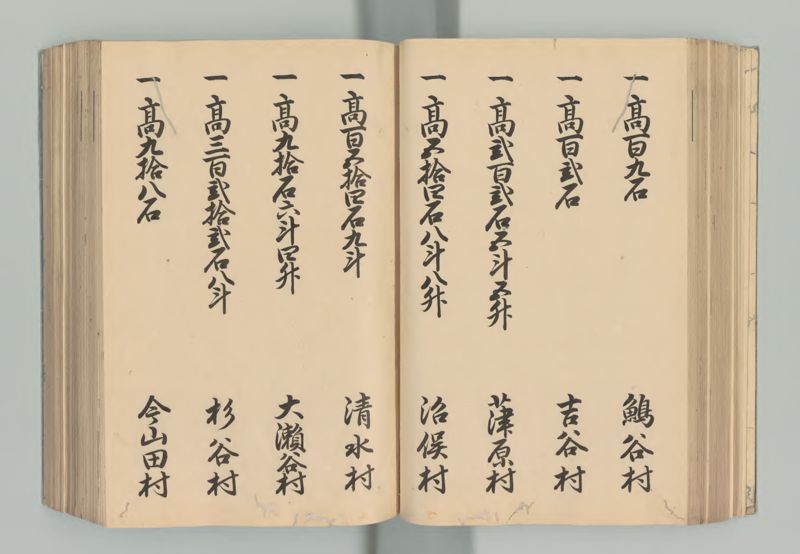 一高百九石 鵤谷村
一高百弐石 吉谷村
一高弐百弐石五斗五升 薭原村
一高五拾四石八斗八升 治俣村
一高百五拾四石九斗 清水村
一高九拾石六斗四升 大瀬谷村
一高三百弐拾弐石八斗 杉谷村
一高九拾八石 今山田村